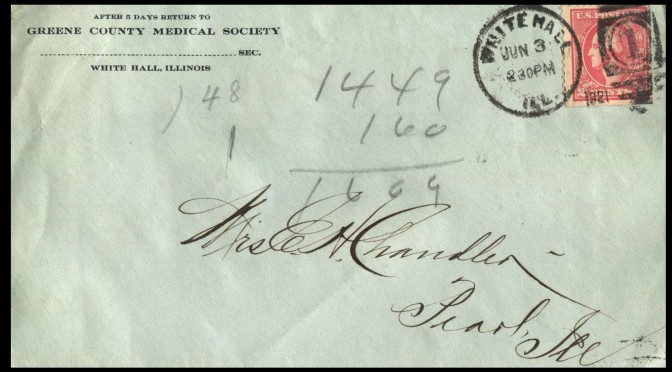 AFTER 5 DAYS RETURN TO
GREENE COUNTY MEDICAL SOCIETY
SEC.
WHITE HALL, ILLINOIS
WHITE HALL
JUN 3
230PM
ILL.
1921
U.S. POSTAGE
1
) 48
1
1449
160
1609
Mrs E. H. Chandler
Pearl, Ill